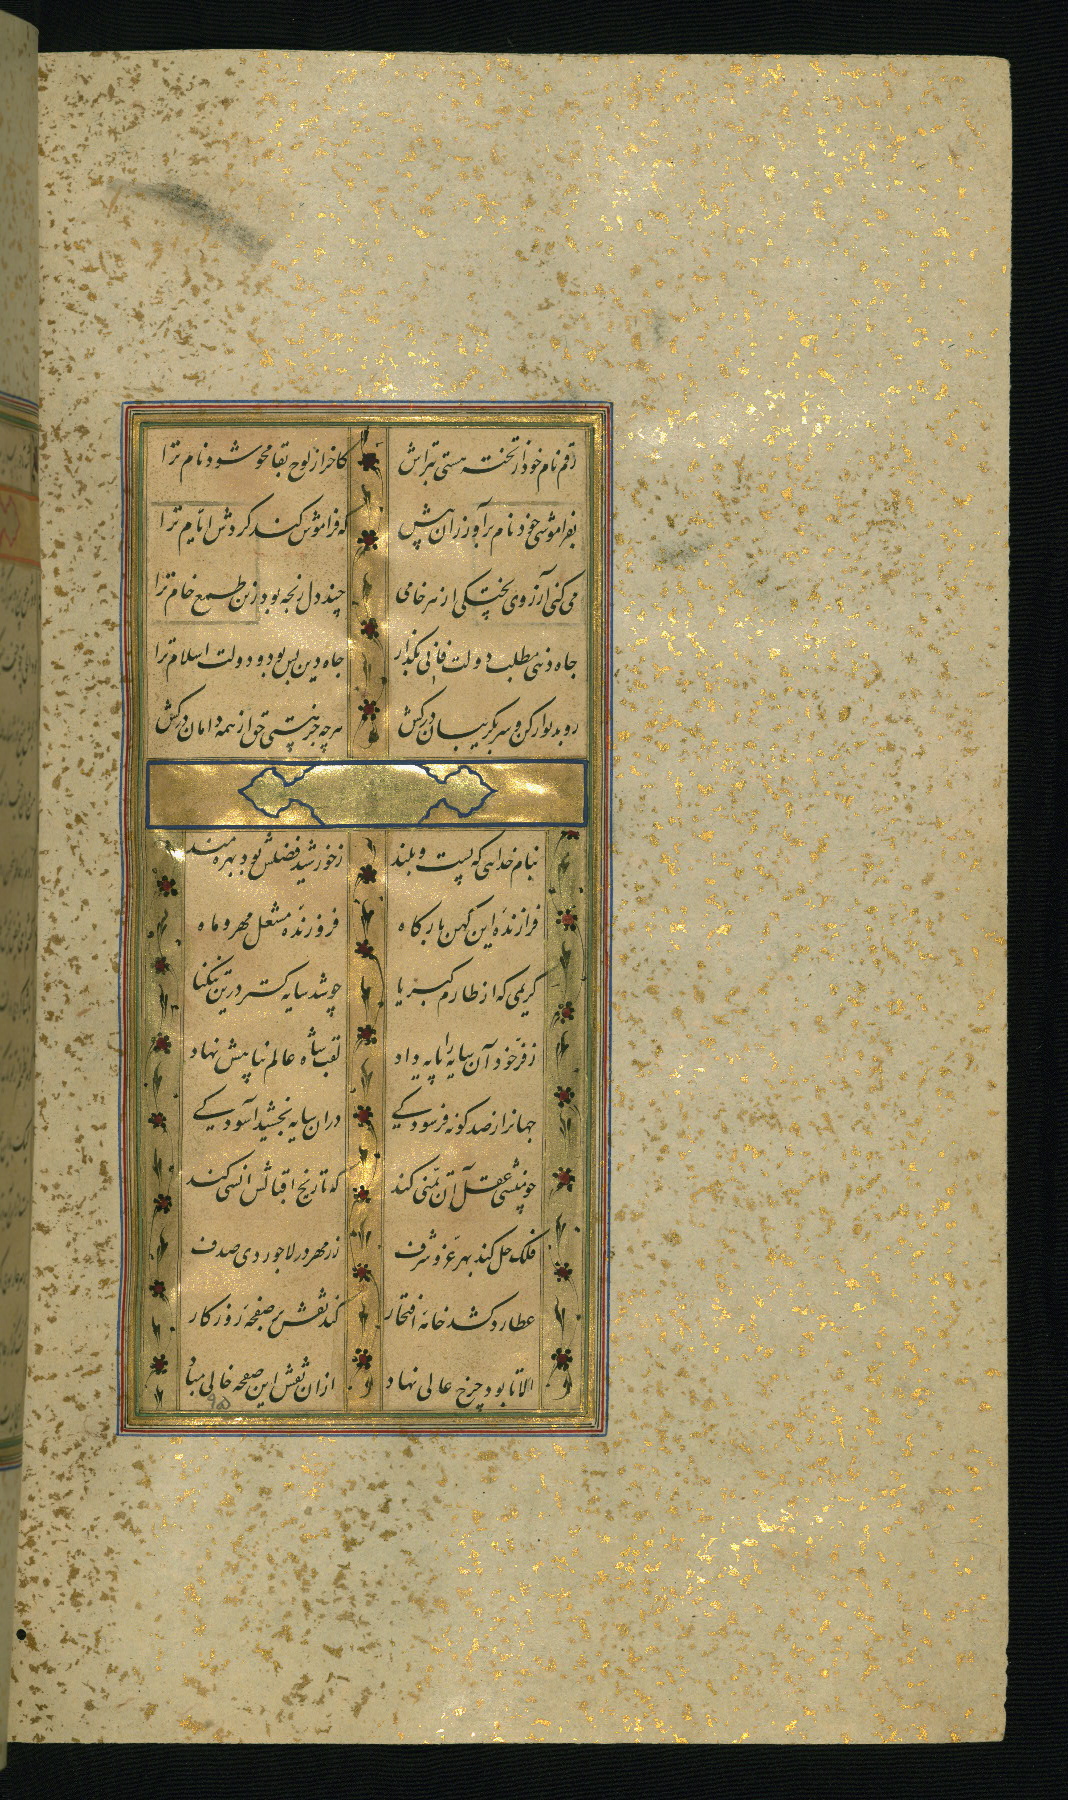 رقم نام خود از تخته هستی بتراش کاخر از لوح بقا محو شود نام ترا
بفراموشی خود نام برآور زان پیش که فراموش کند گردش ایام ترا
می کنی آرزوی پختگی از هر خامی چند دل رنجه بود زین طمع خام ترا
جاه دنیی مطلب دولت فانی بگذار جاه دین بس بود و دولت اسلام ترا
رو بدیوار کن و سر بگریبان درکش هر چه جز نیستی حق از همه دامان درکش
بنام خدایی که پست و بلند ز خورشید فضلش بود بهره مند
فرازنده این کهن بارگاه فروزنده مشعل مهر و ماه
کریمی که از طارم کبریا چو شد سایه گستر درین تنگنا
ز فر خود آن سایه را پایه داد لقب شاه عالم پناهیش نهاد
جهانرا ز صد گونه فرسودگی دران سایه بخشید آسودگی
چو منشی عقل آن تمنی کند که تاریخ اقبالش انشی کند
فلک حل کند بهر عز و شرف زر مهر در لاجوردی صدف
عطارد کشد خامه افتخار کند نقش بر صفحه روزگار
الا تا بود چرخ عالی نهاد ازان نقش این صفحه خالی مباد